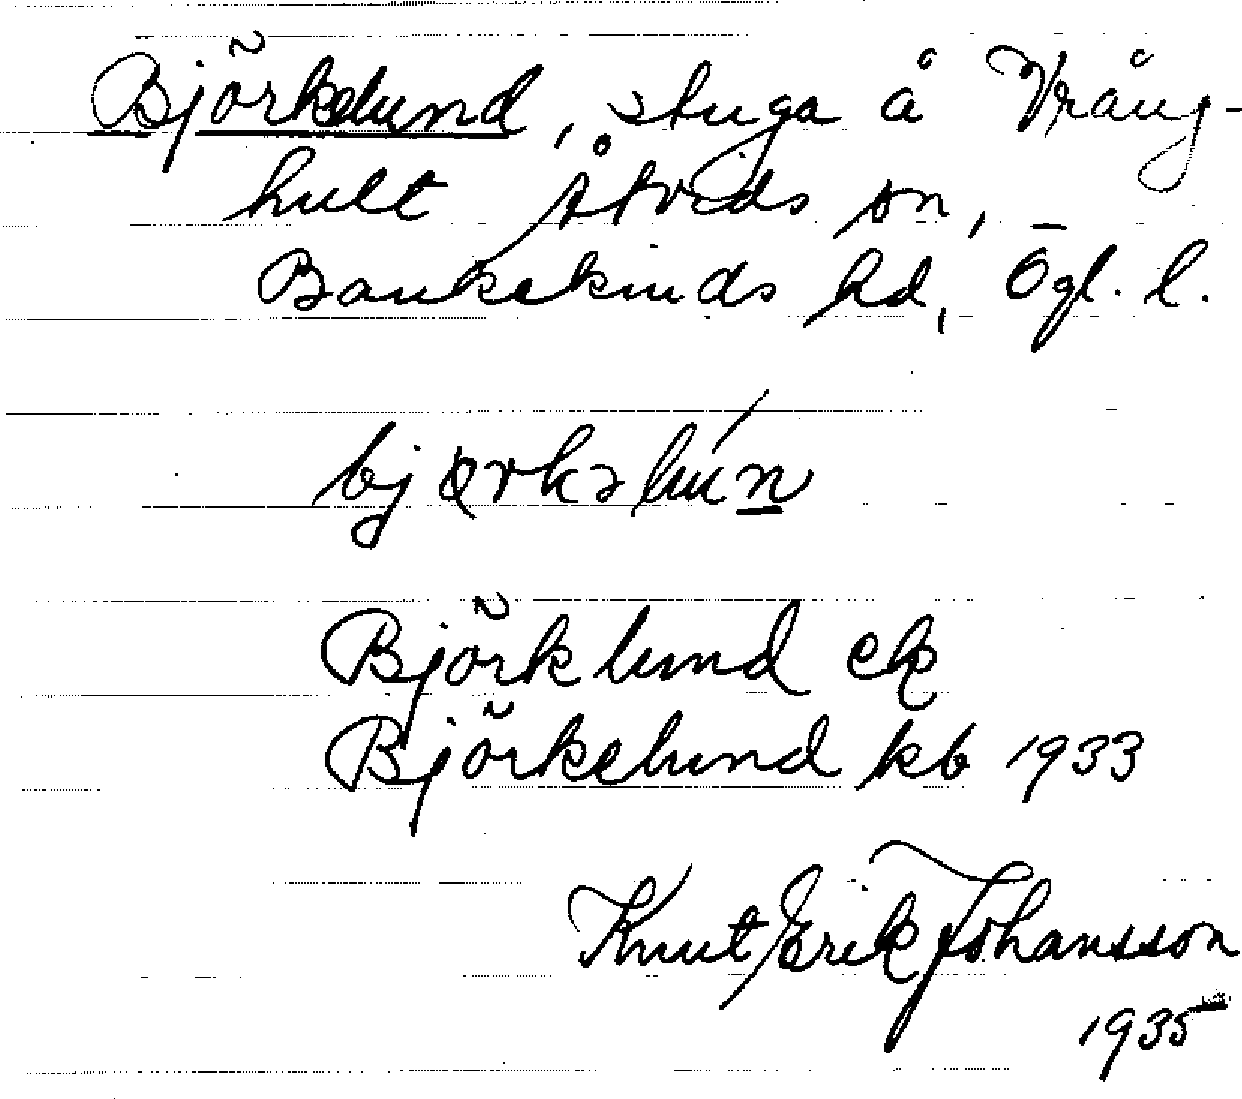 Björkelund, stuga å Vrång-
hult Åtvids sn,
Bankekinds hd, Ögl. l.
bjørkəlún
Björklund ek
Björkelund kb 1933
Knut Erik Johansson
1935